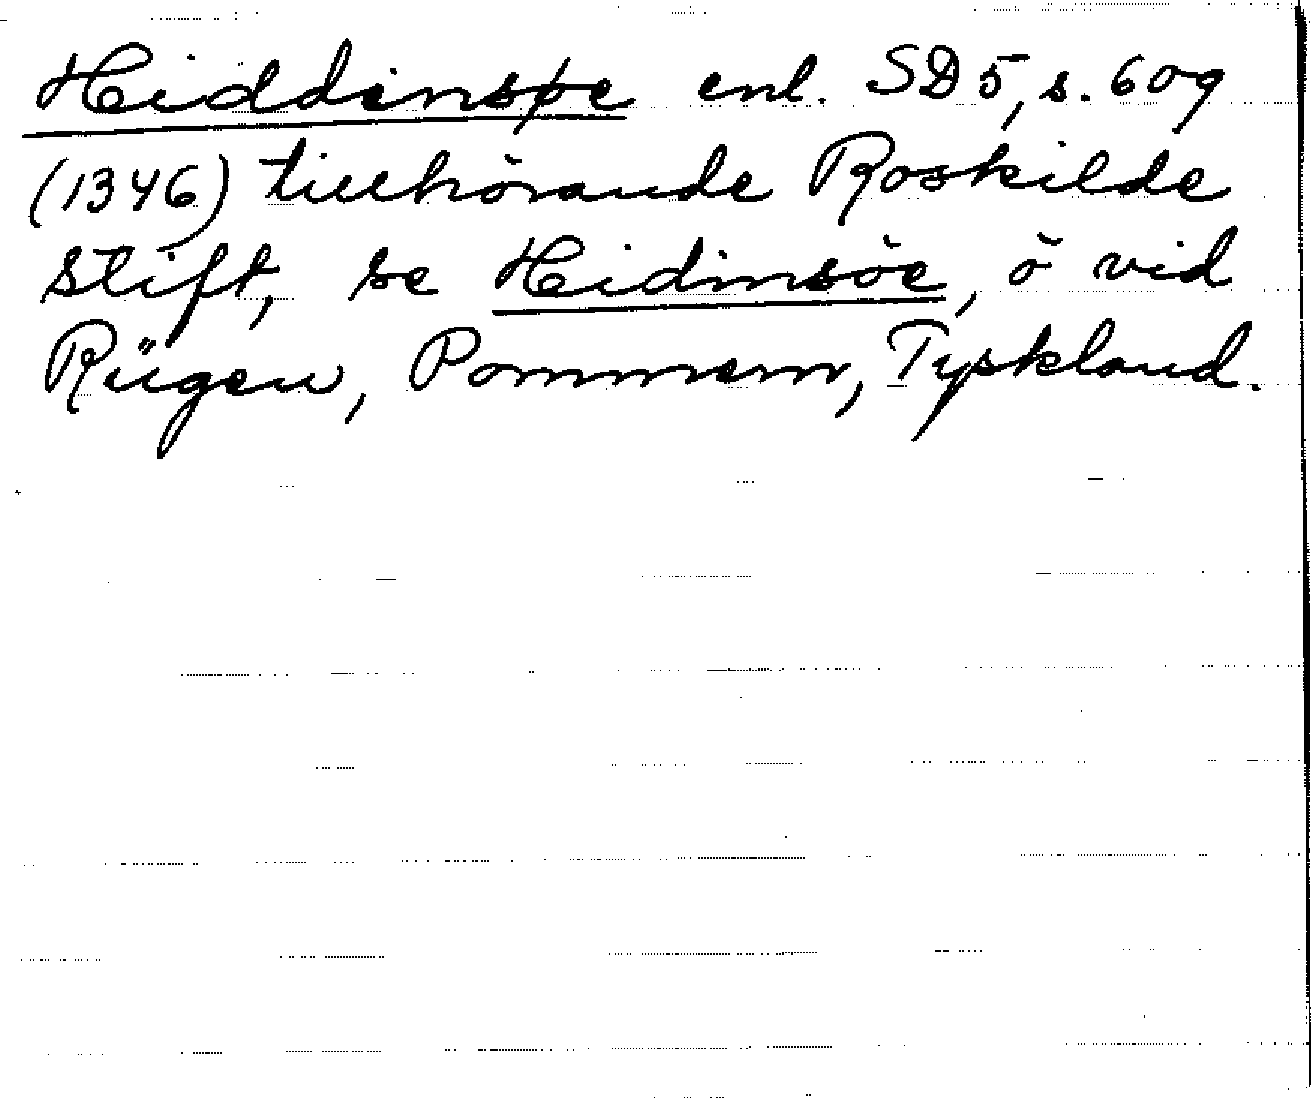 Hiddinsøe enl. SD 5, s. 609
(1346) tillhörande Roskilde
stift, se Hidinsöe, ö vid
Rügen, Pommern, Tyskland.